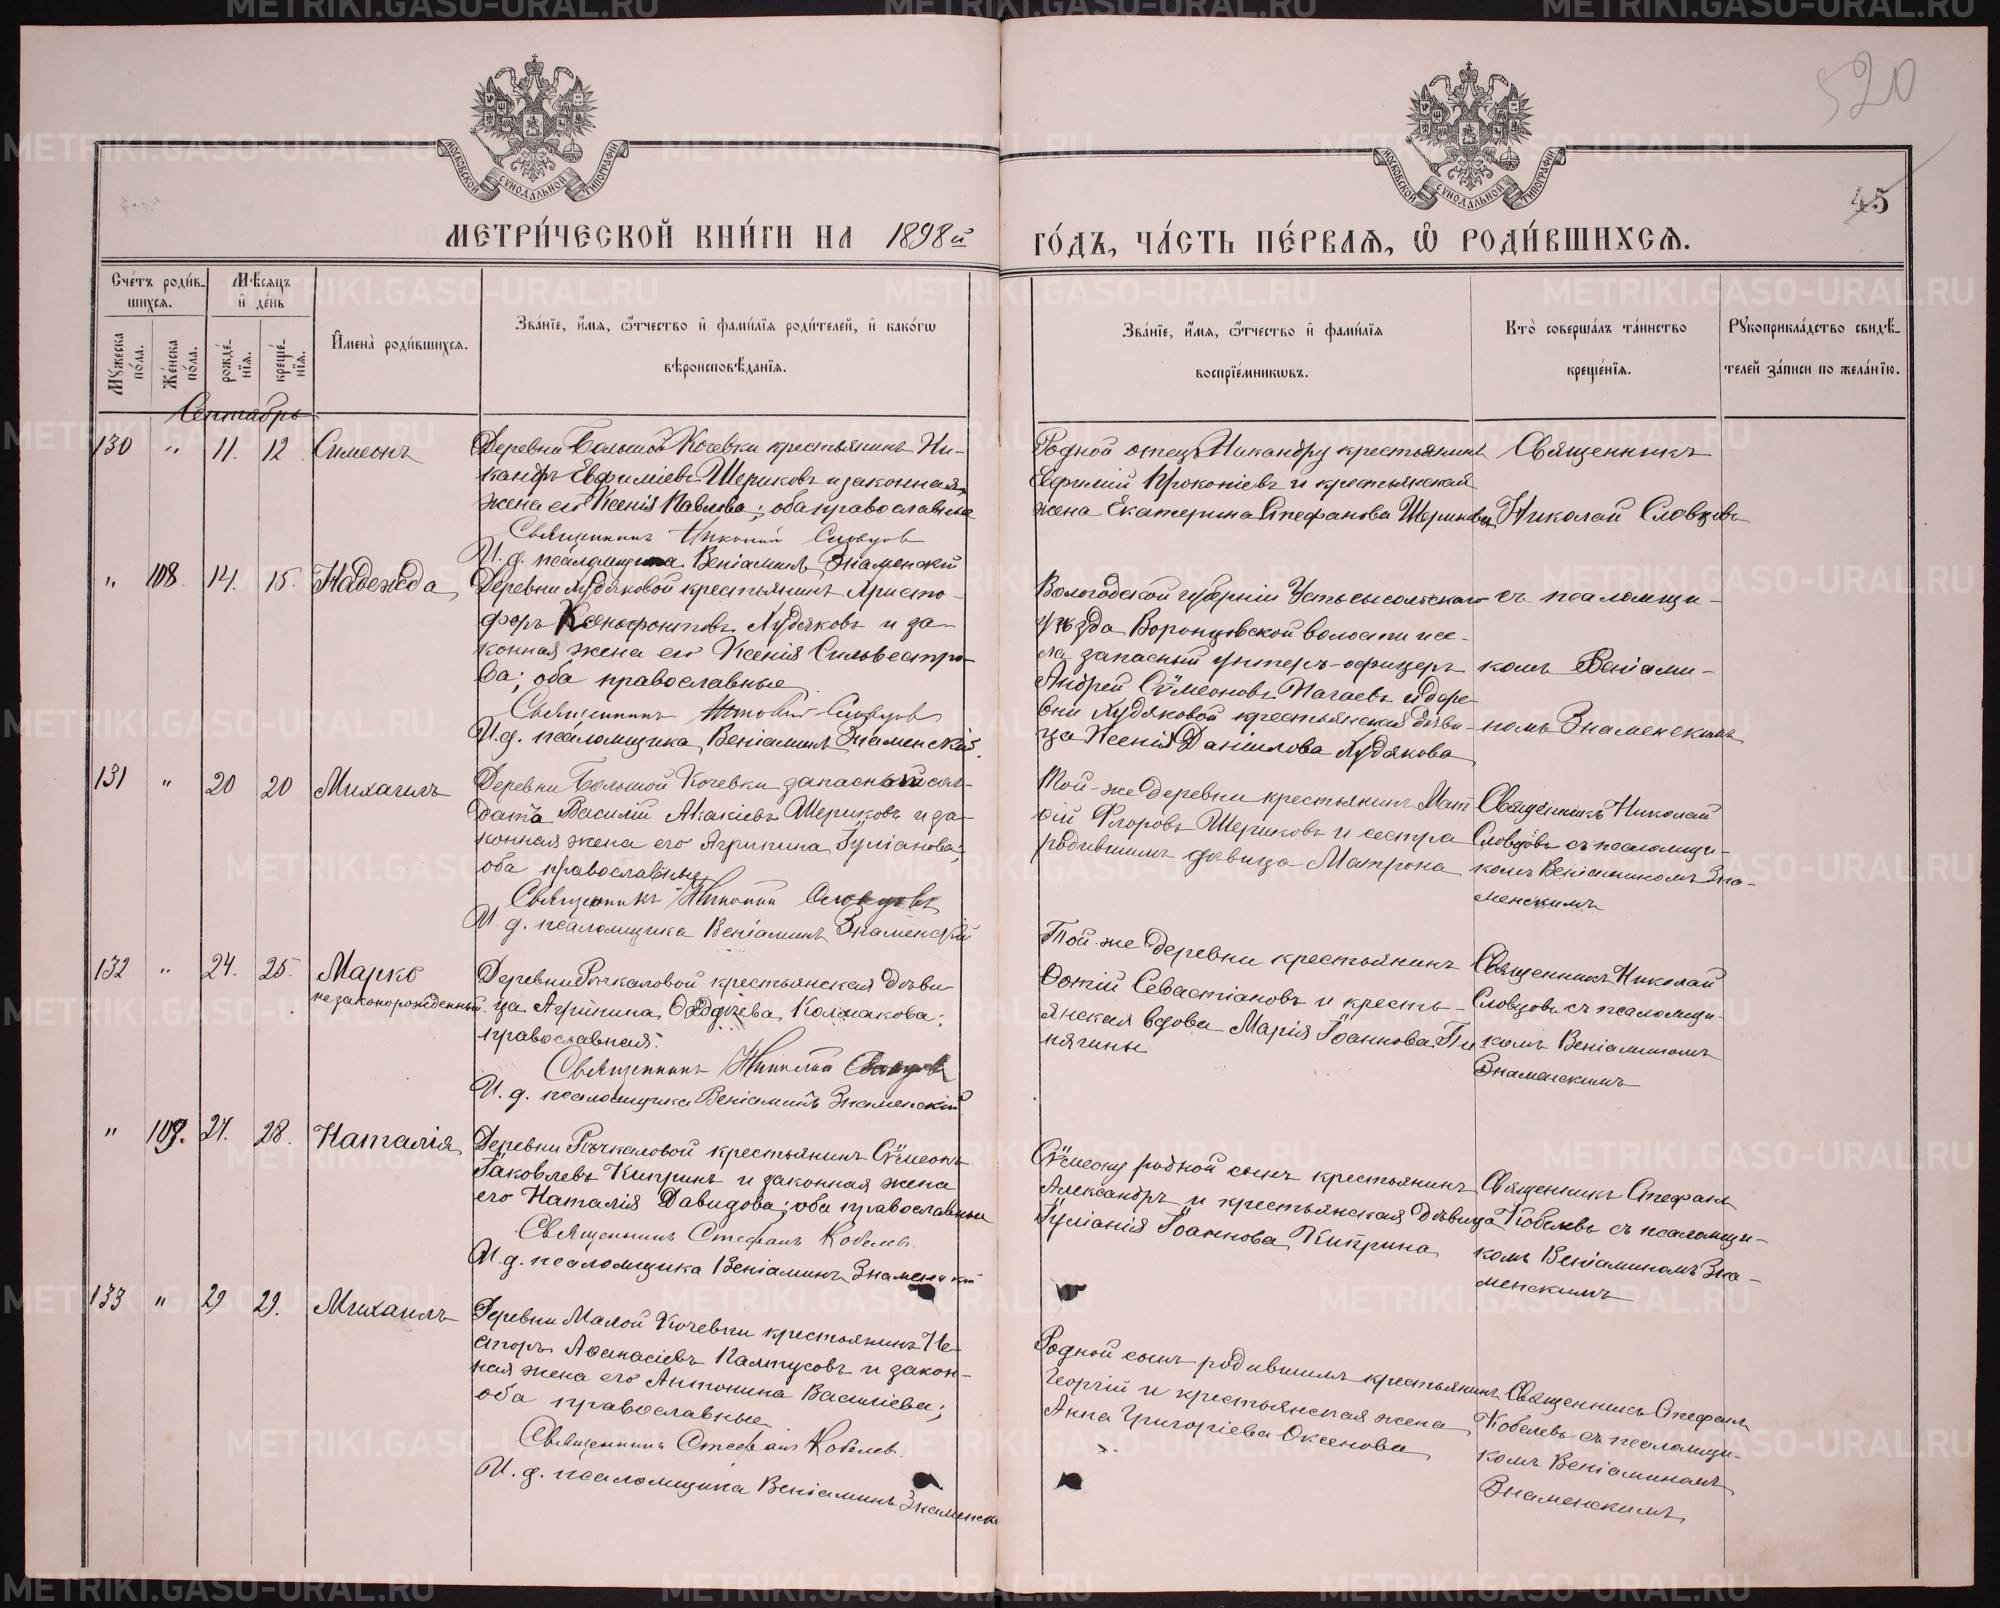 520
45
МОСКОВСКОЙ СУНОДАЛЬНОЙ ТИПОГРАФІИ
МОСКОВСКОЙ СУНОДАЛЬНОЙ ТИПОГРАФІИ
МЕТРИ́ЧЕСКОЙ КНИ́ГИ НА 1898й
ГО́ДЪ, ЧА́СТЬ ПЕ́РВАѦ, Ѡ҆ РОДИ́ВШИХСѦ.
Сче́тъ роди́в-
шихсѧ.
Мѣ́сѧцъ
и҆ де́нь
Мꙋ́жеска по́ла.
Же́нска по́ла.
рожде́нїѧ.
креще́нїѧ.
И҆мена̀ роди́вшихсѧ.
Зва́нїе, и҆́мѧ, ѻ҆́тчество и҆ фами́лїѧ роди́телей, и҆ како́гѡ
вѣроисповѣ́данїѧ.
Зва́нїе, и҆́мѧ, ѻ҆́тчество и҆ фами́лїѧ
воспрїе́мникѡвъ.
Кто̀ соверша́лъ та́инство
креще́нїѧ.
Рꙋкоприкла́дство свидѣ́-
телей за́писи по жела́нїю.
Сентябрь
130 " 11. 12 Симеонъ
Деревни Большой Кочевки крестьянинъ Ни-
кандръ Евфиміевъ Шериковъ и законная
жена его Ксенія Павлова; оба православные
Священникъ Николай Словцовъ
И. д. псаломщика Веніаминъ Знаменскій
Родной отецъ Никандру крестьянинъ
Ефимій Прокопіевъ и крестьянская
жена Екатерина Стефанова Шерикова
Священникъ
Николай Словцовъ
" 108. 14. 15. Надежда
Деревни Худяковой крестьянинъ Христо-
форъ Ксенофонтовъ Худяковъ и за-
конная жена его Ксенія Сильвестро-
ва; оба православные
Священникъ Николай Словцовъ
И. д. псаломщика Веніаминъ Знаменскій
Вологодской губерніи Устьсысольскаго
уѣзда Воронцовской волости и се-
ла запасный унтеръ-офицеръ
Андрей Сѵмеоновъ и дере-
вни Худяковой крестьянская дѣви-
ца Ксенія Даніилова Худякова
съ псаломщи-
комъ Веніами-
номъ Знаменскимъ
131 " 20 20 Михаилъ
Деревни Большой Кочевки запасный сол-
датъ Василій Акакіевъ Шериковъ и за-
конная жена его Агрипина Іуліанова;
оба православные
Священникъ Николай Словцовъ
И. д. псаломщика Веніаминъ Знаменскій
Той-же деревни крестьянинъ Мат
ѳій Флоровъ Шериковъ и сестра
родившимъ дѣвица Матрона
Священникъ Николай
Словцовъ съ псаломщи-
комъ Веніаминомъ Зна-
менскимъ
132 " 24. 25. Марко
незаконорожденный
Деревни Рычкаловой крестьянская дѣви-
ца Агрипина Колмакова;
православная.
Священникъ Николай Словцовъ
И. д. псаломщика Веніаминъ Знаменскій
Той-же деревни крестьянинъ
Фотій Севастіановъ и кресть-
янская вдова Марія Іоаннова Пи
нягины
Священникъ Николай
Словцовъ съ псаломщи-
комъ Веніаминомъ
Знаменскимъ
" 109. 27. 28. Наталія
Деревни Рычкаловой крестьянинъ Сѵмеонъ
Іаковлевъ Кипринъ и законная жена
его Наталія Давидова; оба православные
Священникъ Стефанъ Кобелевъ.
И. д. псаломщика Веніаминъ Знаменскій
Сѵмеону родной сынъ крестьянинъ
Александръ и крестьянская дѣвица
Іуліанія Іоаннова Киприна
Священникъ Стефанъ
Кобелевъ съ псаломщи-
комъ Веніаминомъ Зна-
менскимъ
133 " 29 29. Михаилъ
Деревни Малой Кочевки крестьянинъ Не-
сторъ Аѳанасіевъ Палтусовъ и закон-
ная жена его Антонина Василіева;
оба православные
Священникъ Стефанъ Кобелевъ.
И. д. псаломщика Веніаминъ Знаменск
Родной сынъ родившимъ крестьянинъ
Георгій и крестьянская жена
Анна Григоріева Оксенова
Священникъ Стефанъ
Кобелевъ съ псаломщи-
комъ Веніаминомъ
Знаменскимъ
METRIKI.GASO-URAL.RU